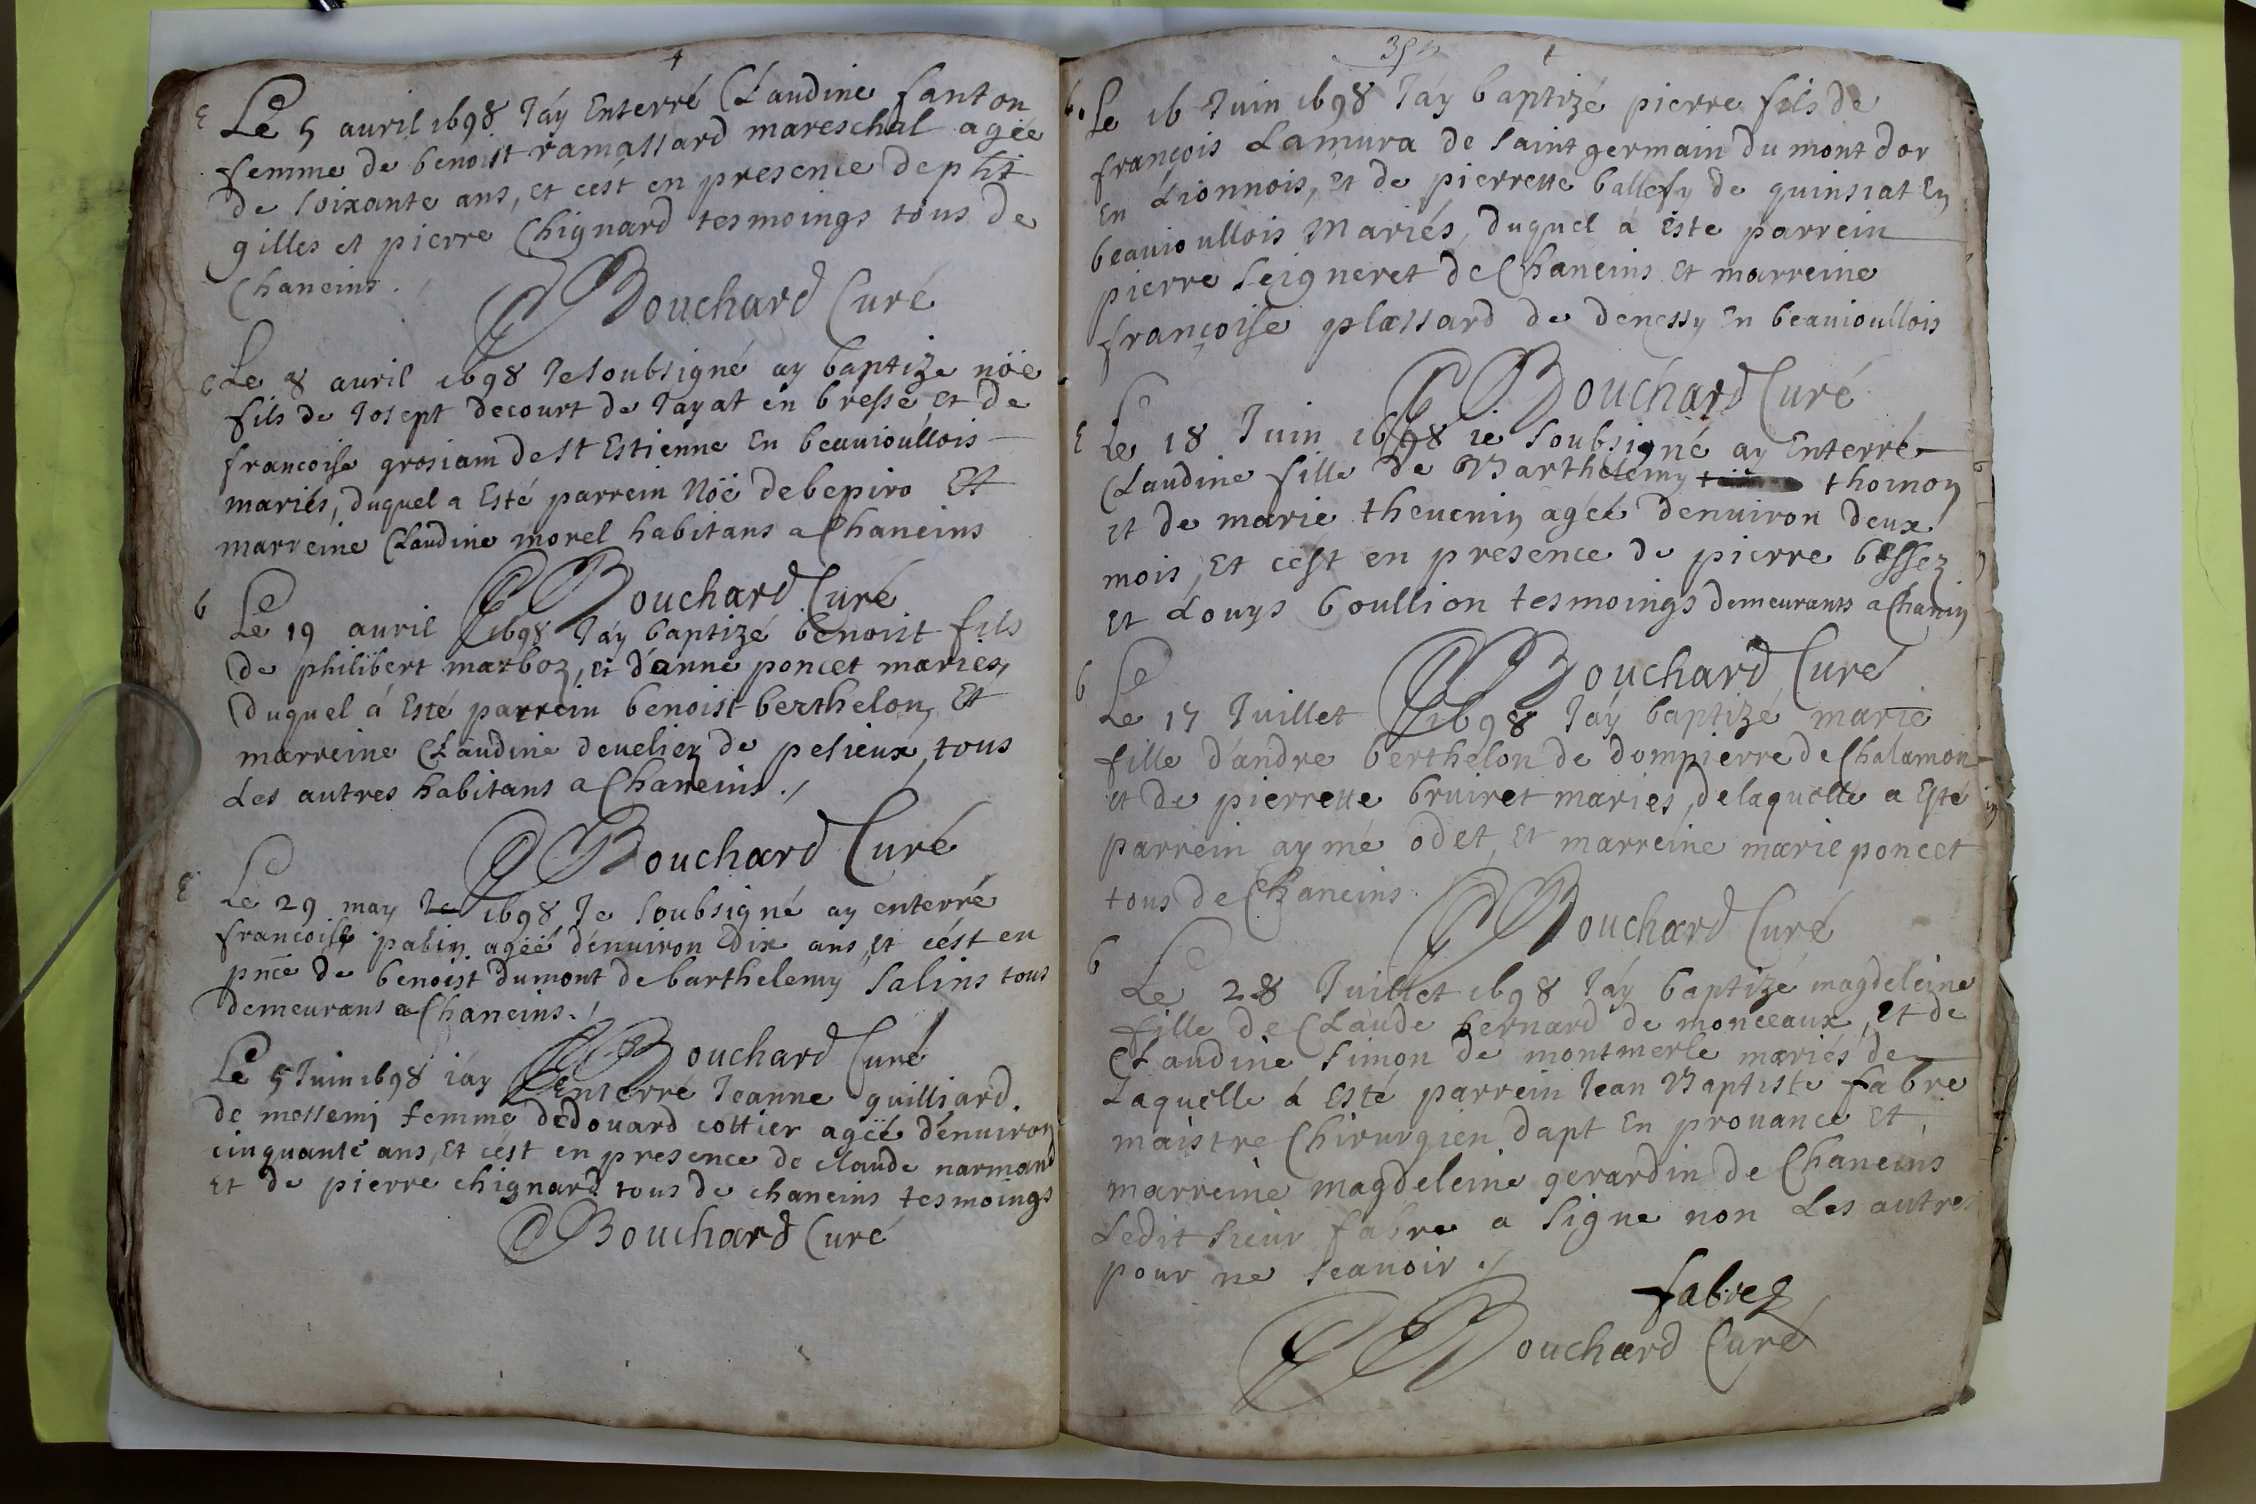 E Le 5 auril 1698 J'ay Enterré Claudine fanton
femme de benoist ramassard mareschal agée
de soixante ans, et cest en presence de phit
gilles et pierre Chignard tesmoings tous de
Chaneins.
Bouchard Curé
Le 8 auril 1698 Je soubsigné ay baptize nöe
fils de Josept decourt de Jayat en bresse, et de
francoise grosiam de st Estienne En beauioullois
mariés, duquel a Esté parrein Nöe debepiro Et
marreine Claudine morel habitans a Chaneins
Bouchard Curé
b Le 19 auril 1698 J'ay baptizé benoist fils
de philibert marboz, et d'anne poncet maries,
duquel á Esté parrein benoist berthelon, Et
marreine Claudine deueliez de pesieux, tous
Les autres habitans a Chaneins ./
Bouchard Curé
E Le 29 may 1698 Je soubsigné ay enterré
francoise pabin agéé d'enuiron Dix ans, et cést en
pnce de benoist dumont de barthelemy Salins tous
demeurans a Chaneins ./
Bouchard Curé
Le 5 Juin 1698 i'ay Enterré Jeanne guilliard
de messemi femme dedouard cottier agéé d'enuiron
cinquante ans, Et cést en presence de claude narmand
Et de pierre chignard tous de chaneins tesmoings
Bouchard Curé
b. Le 16 Juin 1698 J'ay baptizé pierre fils de
françois Lamura de saint germain du mont dor
En Lionnois, Et de pierrette ballefy de quinsiat En
beauioullois Mariés, duquel á Este parrein
pierre seigneret de Chaneins Et marreine
françoise plassard de denessy En beauioullois
Bouchard Curé
E Le 18 Juin 1698 ie soubsigné ay Enterré
Claudine fille de Barthelemy thoinon
et de marie theuenin agéé denuiron deux
mois, Et cést en presence de pierre bessez
et Louys boullion tesmoings demeurants a Chanin
Bouchard Curé
b Le 17 Juillet 1698 J'ay baptizé marie
fille d'andre berthelon de dompierre de Chalamon
et de pierrette bruiret mariés, de laquelle a Esté
parrein aymé odet, et marreine marie poncet
tous de Chaneins
Bouchard Curé
b Le 28 Juillet 1698 J'ay baptizé magdeleine
fille de Claude bernard de monceaux, et de
Claudine Simon de montmerle mariés de
Laquelle á Esté parrein Jean Baptiste fabre
maistre Chirurgien dapt En prouance Et
marreine magdeleine gerardin de Chaneins
Ledit sieur fabre a signe non Les autres
pour ne scauoir ./
fabre
Bouchard Curé